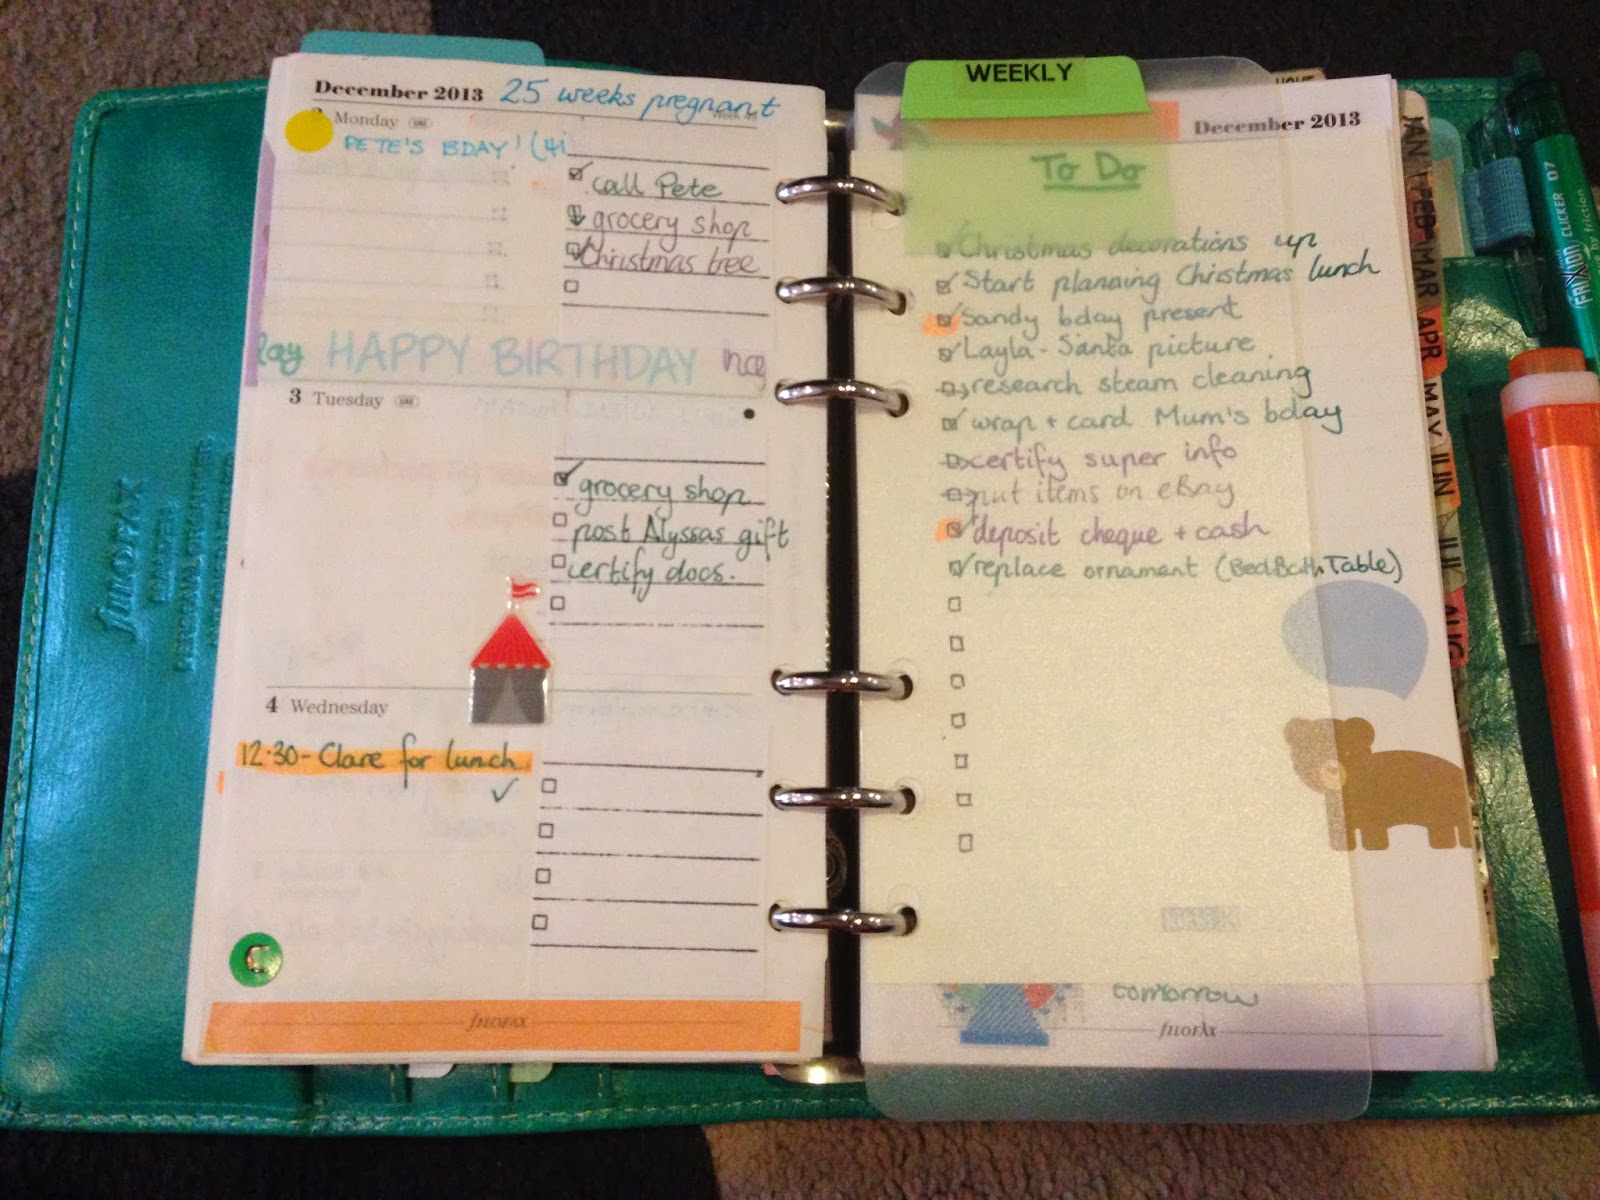 December 2013 25 weeks pregnant
Monday UAE
PETE'S BDAY! (41
call Pete
grocery shop
Christmas tree
HAPPY BIRTHDAY
3 Tuesday UAE
grocery shop
post Alyssas gift
certify docs.
4 Wednesday
12.30 - Clare for lunch
C
FILOFAX
WEEKLY
December 2013
To Do
Christmas decorations up
Start planning Christmas lunch
Sandy bday present
Layla - Santa picture
research steam cleaning
wrap + card Mum's bday
certify super info
put items on eBay
deposit cheque + cash
replace ornament (BedBathTable)
tomorrow
FILOFAX
JAN
FEB
MAR
APR
MAY
JUN
JUL
AUG
FRIXION CLICKER 07
filofax
PERSONAL ORGANISER